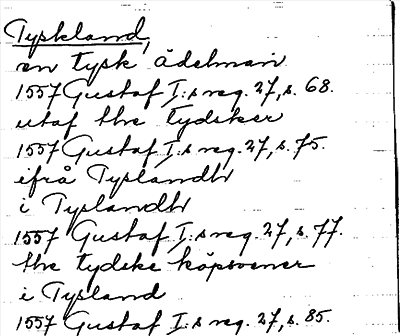 Tyskland,
en tysk ädelman
1557 Gustaf I:s reg. 27, s. 68.
utaf the tydsker
1557 Gustaf I:s reg. 27, s. 75.
ifrå Tyslandh
i Tyslandh
1557 Gustaf I:s reg. 27, s. 77.
the tydske köpsvener
i Tysland
1557 Gustaf I:s reg. 27, s. 85.